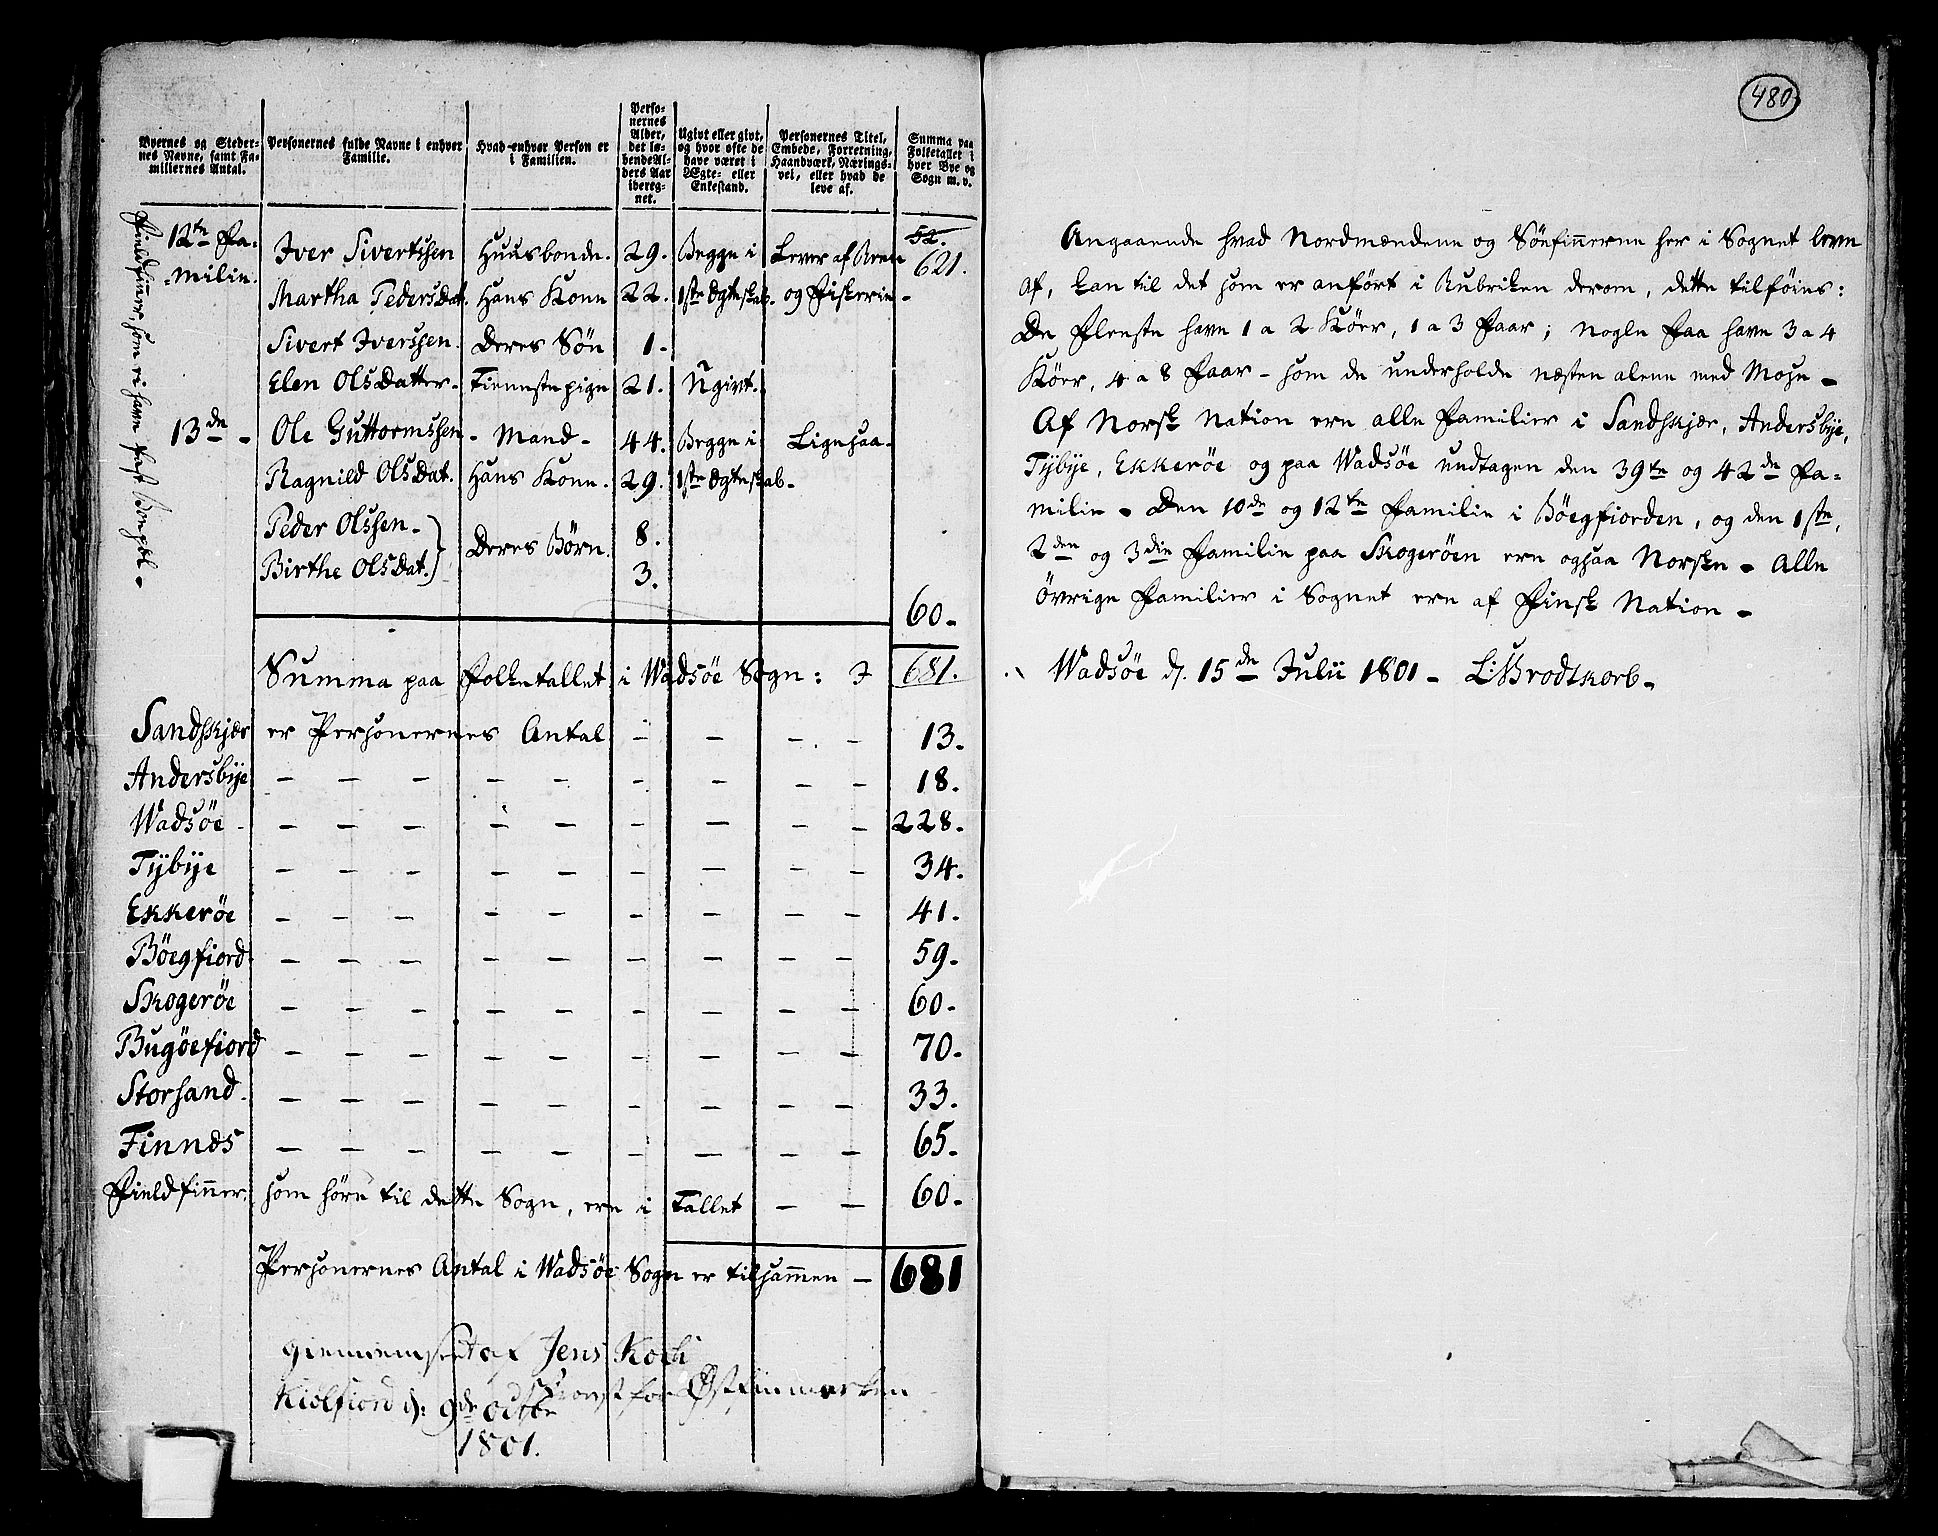 Byernes og Steder-
nes Navne, samt Fa-
miliernes Antal.
Personernes fulde Navne i enhver
Familie.
Hvad enhver Person er
i Familien.
Perso-
nernes
Alder,
det lø-
bende Al-
ders Aar
ibereg-
net.
Ugivt eller givt,
og hvor ofte de
have været i
Ægte- eller
Enkestand.
Personernes Titel,
Embede, Forretning,
Haandværk, Nærings-
vei, eller hvad de
leve af.
Summa paa
Folketallet i
hver Bye og
Sogn m. v.
Fieldfinner, som ei have fast Boepæl.
12te Fa- Iver Sivertssen Huusbonde. 29. Begge i Lever af Reen 52.
milie. Martha Pedersdat. Hans Kone 22. 1ste Ægteskab. og Fiskerie - 621.
Sivert Iverssen. Deres Søn 1.
Elen Olsdatter. Tienestepige 21. Ugivt.
13de - Ole Guttormssen - Mand - 44. Begge i Ligesaa.
Ragnild Olsdat. Hans Kone. 29. 1ste Ægteskab.
Peder Olssen. } Deres Børn. 8.
Birthe Olsdat. 3.
60.
Summa paa Folketallet i Wadsöe Sogn: I 681.
Sandskjær er Personernes Antal - - - - 13.
Andersbye - - - - - - - - - 18.
Wadsöe - - - - - - - - - 228.
Tÿbÿe - - - - - - - - - 34.
Ekkeröe - - - - - - - - - 41.
Böegfiord - - - - - - - - - 59.
Skogeröe - - - - - - - - - 60.
Bugöefiord - - - - - - - - - 70.
Storsand. - - - - - - - - - 33.
Finnæs - - - - - - - - - 65.
Fieldfinner, som höre til dette Sogn, ere i Tallet - - 60.
Personernes Antal i Wadsöe Sogn er tilsammen - 681
Giennemseet af Jens Koch
Const for Østfinmarken
Kiölfiord d: 9de Octbr
1801.
480
Angaaende hvad Nordmændene og Söefinnerne her i Sognet leve
af, kan til det som er anfört i Rubriken derom, dette tilföies:
De Fleeste have 1 a 2 Köer, 1 a 3 Faar; nogle Faa have 3 a 4
Köer, 4 a 8 Faar - som de underholde næsten alene med Mose -
Af Norsk Nation ere alle Familier i Sandskjær, Andersbye,
Tÿbÿe, Ekkeröe og paa Wadsöe undtagen den 39te og 42de Fa-
milie - Den 10de og 12te Familie i Böegfiorden, og den 1ste,
2den og 3die Familie paa Skogeröen ere ogsaa Norske - Alle
övrige Familier i Sognet ere af Finsk Nation -
Wadsöe d. 15de Julii 1801 - L: Brodtkorb -